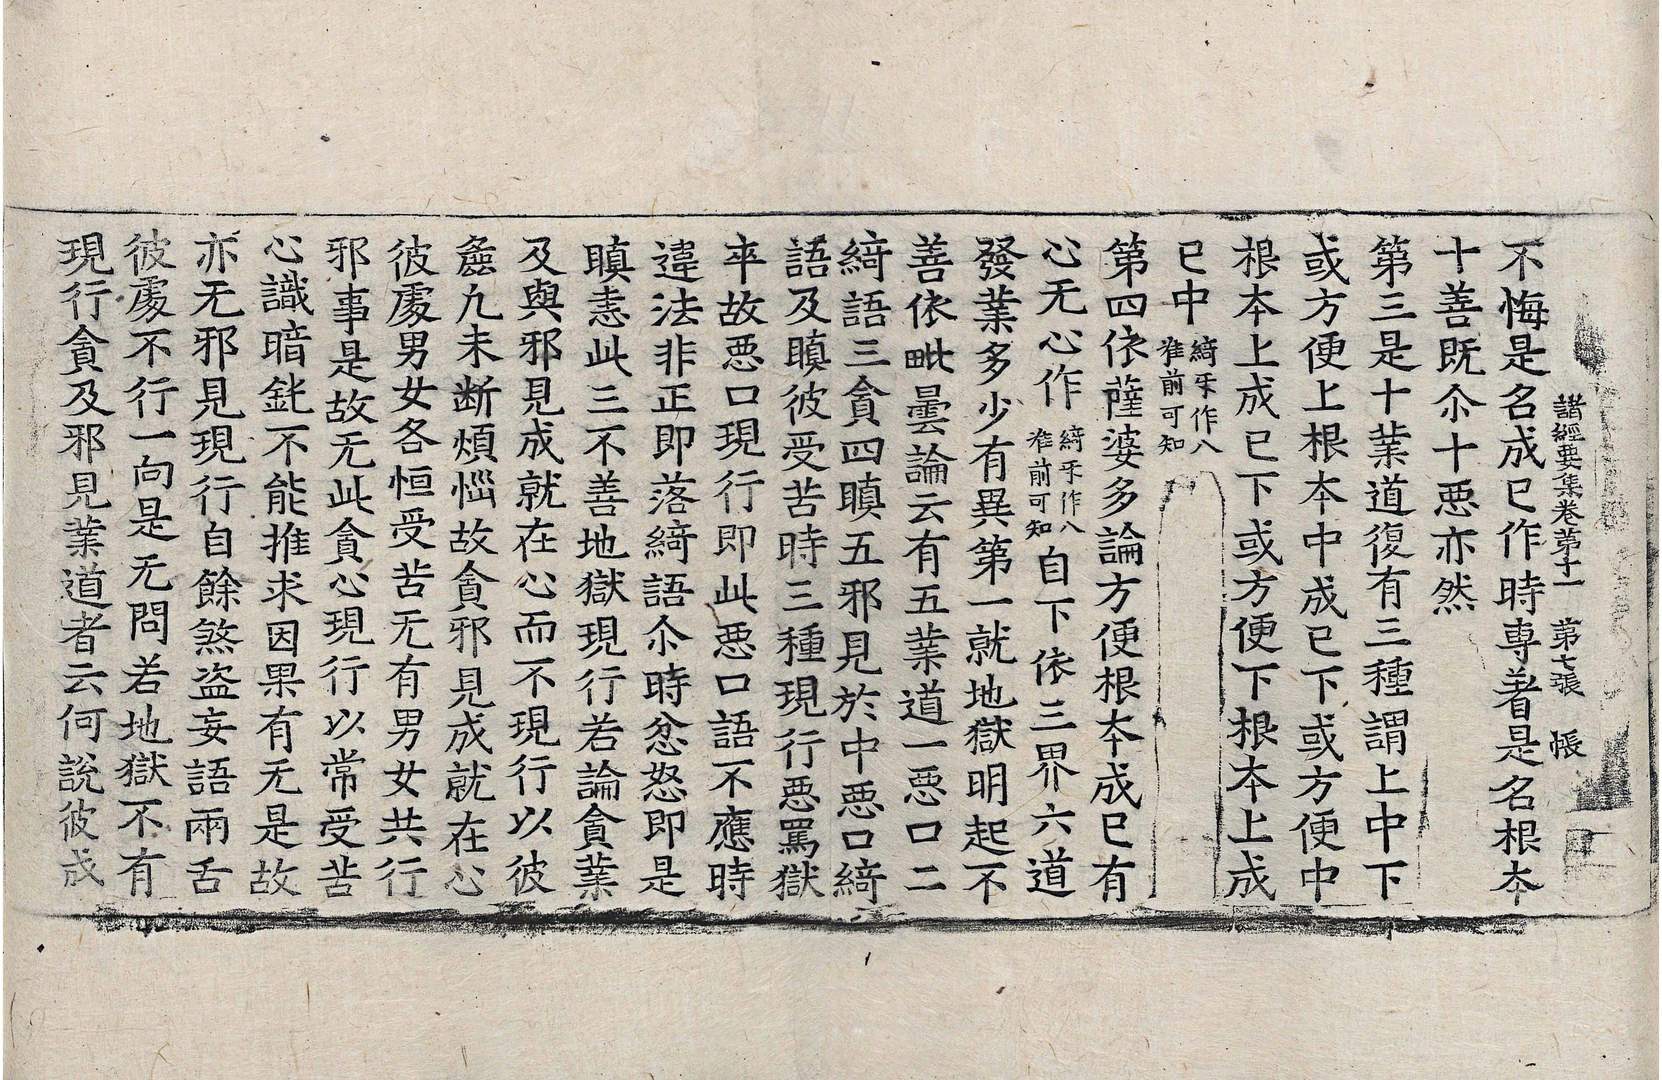 諸經要集卷第十一 第七張 帳
不悔是名成已作時専著是名根夲
十善既尒十惡亦然
第三是十業道復有三種謂上中下
或方便上根夲中成已下或方便中
根夲上成已下或方便下根夲上成
已中綺㸦作八准前可知
第四依薩婆多論方便根夲成已有
心无心作綺㸦作八准前可知自下依三界六道
發業多少有異第一就地獄明起不
善依毗曇論云有五業道一惡口二
綺語三貪四瞋五邪見於中惡口綺
語及瞋彼受苦時三種現行惡罵獄
卒故惡口現行即此惡口語不應時
違法非正即落綺語尒時忿怒即是
瞋恚此三不善地獄現行若論貪業
及與邪見成就在心而不現行以彼
麁凡未断煩惱故貪邪見成就在心
彼處男女各恒受苦无有男女共行
邪事是故无此貪心現行以常受苦
心識暗鈍不能推求因果有无是故
亦无邪見現行自餘煞盗妄語兩舌
彼處不行一向是无問若地獄不有
現行貪及邪見業道者云何說彼成